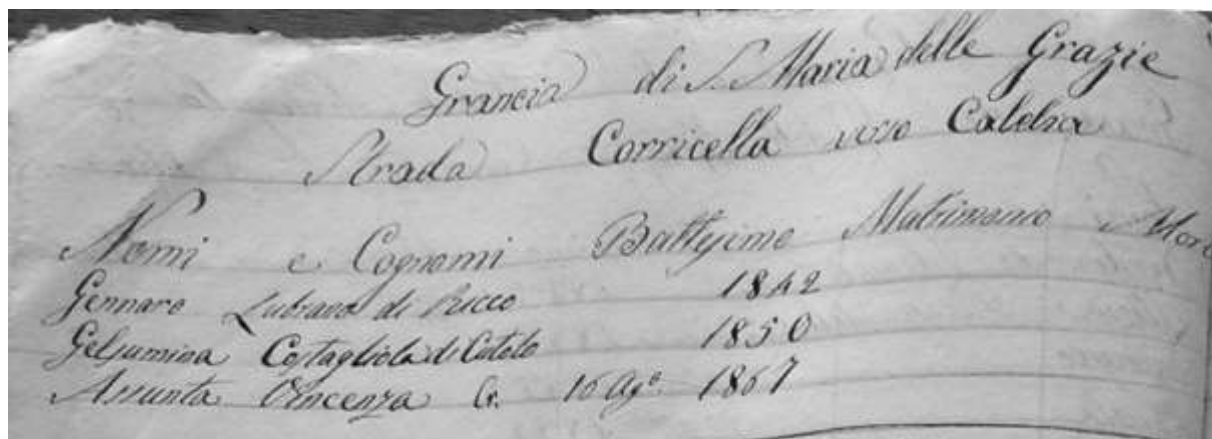 Grancia di S. Maria delle Grazie
Strada Corricella verso
Nomi e Cognomi Battesimo Matrimonio Mor
Gennaro Lubrano di Ricco 1842
Gelsumina Costagliola di 1850
Assunta Vincenza 16 Ago. 1867